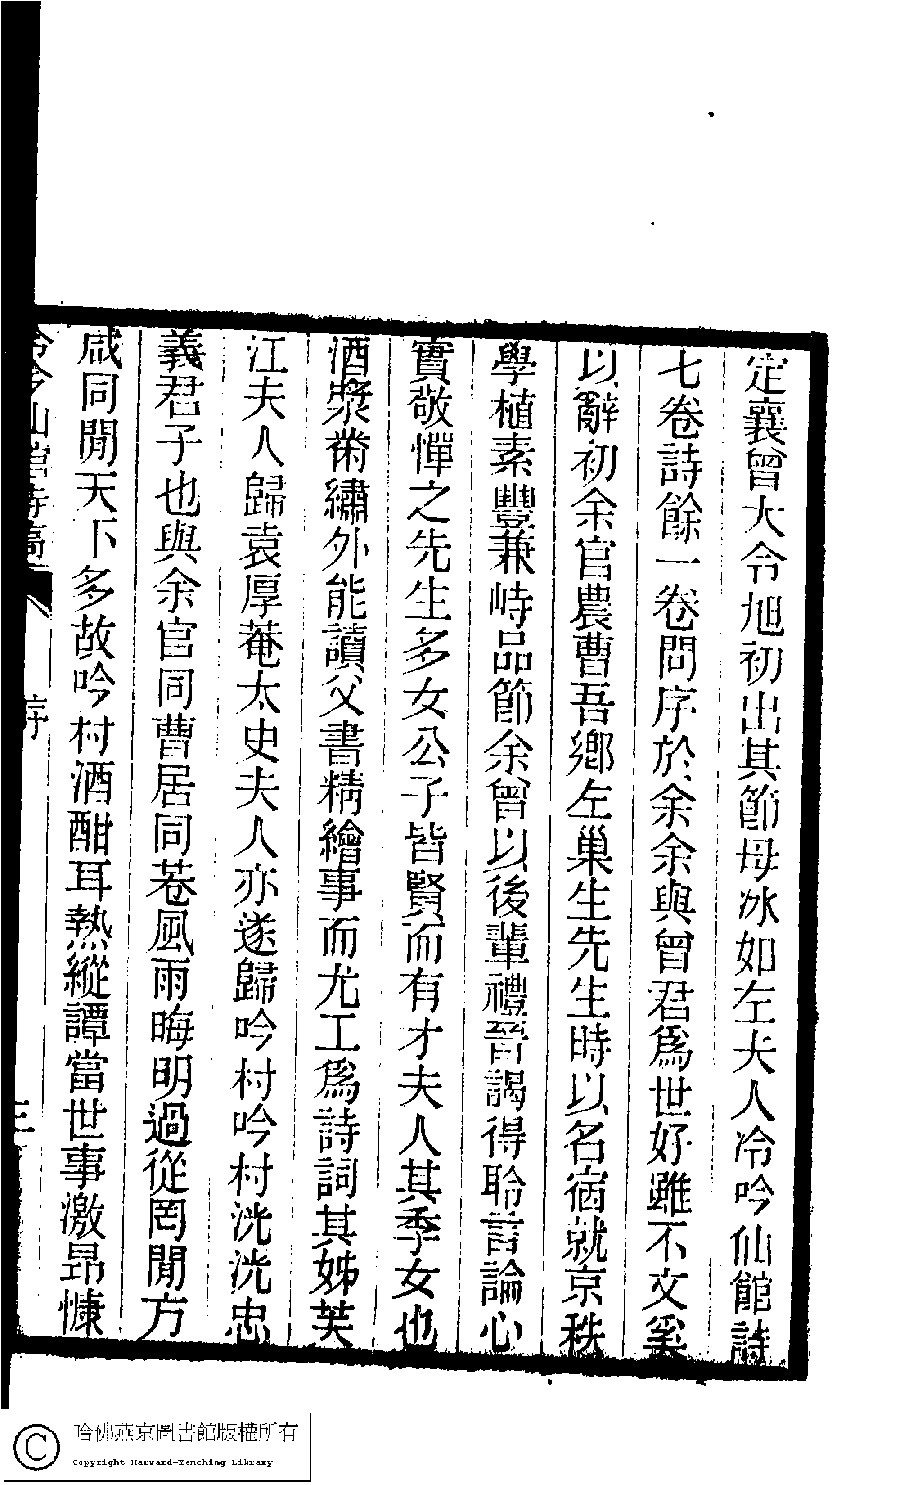 定襄曾大令旭初出其節母冰如左夫人冷吟仙館詩
七卷詩餘一卷問序於余余與曾君爲世好雖不文奚
以辭初余官農曹吾鄉左巢生先生時以名宿就京秩
學植素豐兼峙品節余曾以後輩禮晉謁得聆言論心
實敬憚之先生多女公子皆賢而有才夫人其季女也
酒漿黹繡外能讀父書精繪事而尤工爲詩詞其姊芙
江夫人歸袁厚菴太史夫人亦遂歸吟村吟村洸洸忠
義君子也與余官同曹居同巷風雨晦明過從罔閒方
咸同閒天下多故吟村酒酣耳熱縱譚當世事激昂慷
冷吟仙館詩稿 序 三
哈佛燕京圖書館版權所有
Copyright Harvard-Yenching Library